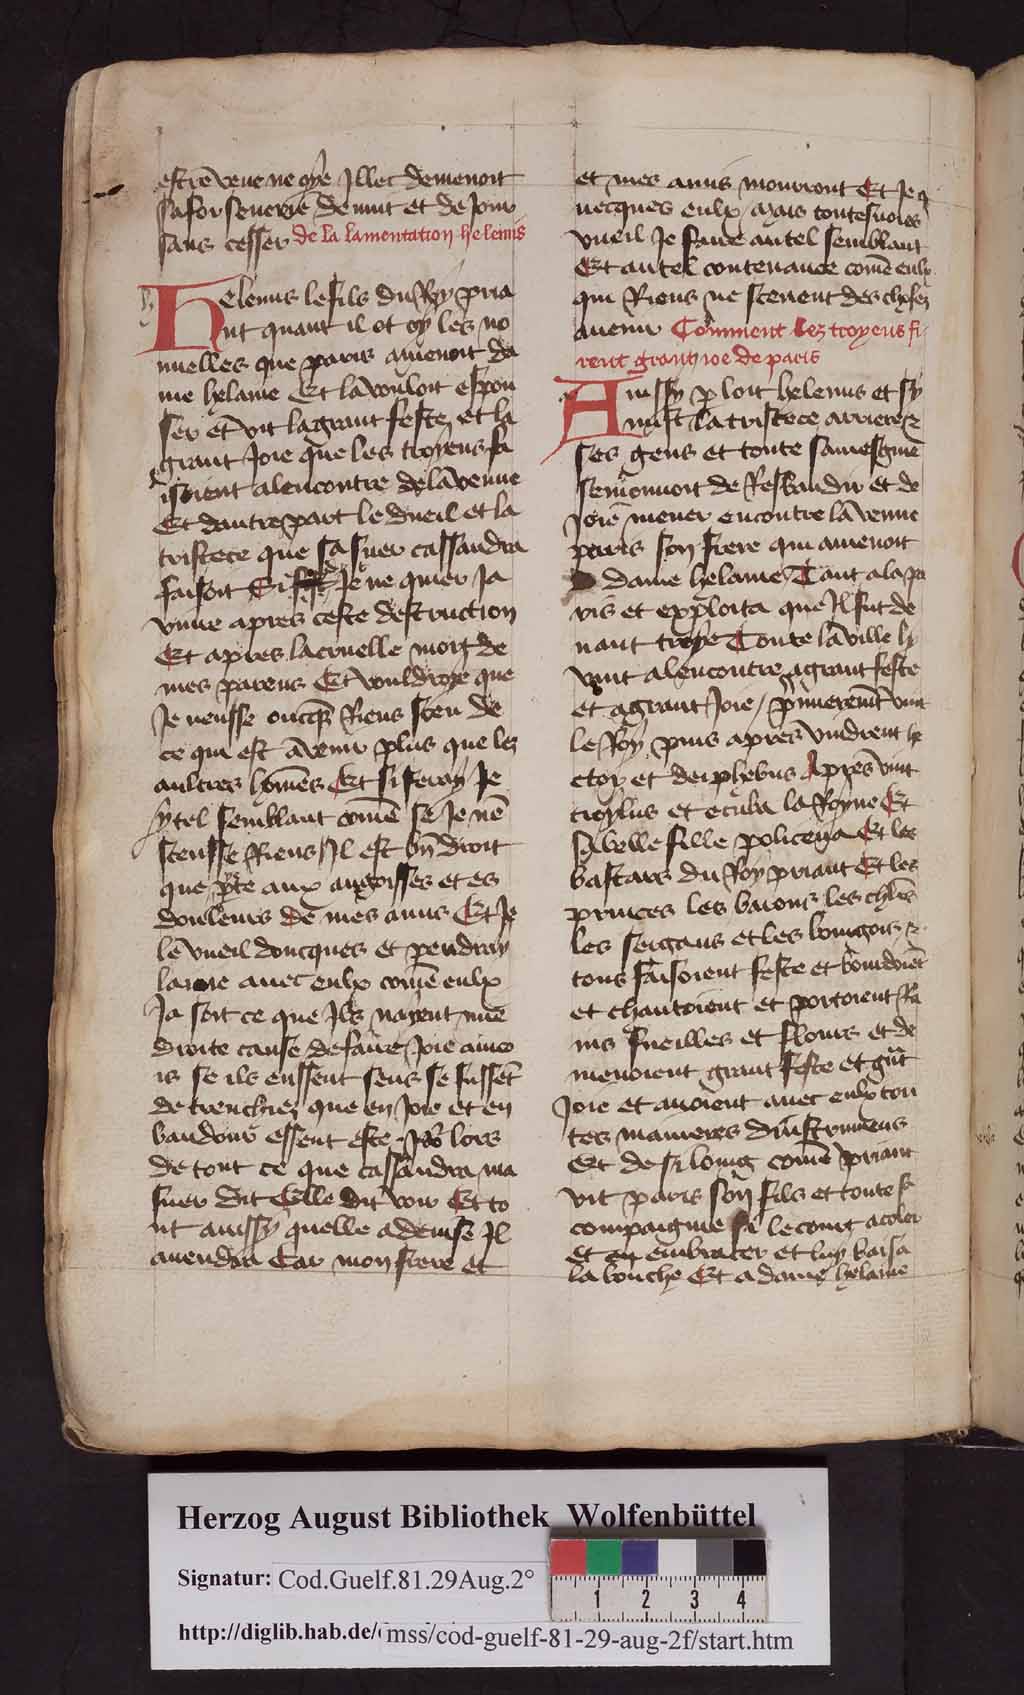 estre veue ne oye Illec demenoit
sa forsenerie de nuit et de Jour
sans cesser de la lamentation helenus
Helenus le fils du Roy pria
nt quant il ot oy les no
nuelles que paris amenoit da
me helaine Et la vouloit espou
ser et vit la grant feste et la
grant Joie que les troyens fa
isoient alencontre de la venue
Et dautre part le dueil et la
tristece que sa suer cassandra
faisoit Je ne quier Ja
viure apres ceste destruction
Et apres la cruelle mort de
mes parens Et vouldroye que
Je neusse oncqs Riens sceu de
ce qui est a venir plus que les
aultres homes Et si feray Je
ytel semblant come se Je nen
sceusse Riens Il est bn droit
que pte aux angoisses et es
douleurs de mes amis Et Je
le vueil doncques et prendray
la mort auec eulx come eulx
Ja soit ce que Ils nayent mie
droite cause de faire Joie ainco
is se ils eussent sens se fussent
detrenchiez que en Joie et en
baudour essent este lors
de tout ce que cassandra ma
suer dit Elle dit voir Et to
ut aussy quelle a deuise Il
auendra Car mon frere et
et mes amis mourront Et Je a
uecques eulx Mais toutesuoies
vueil Je faire autel semblant
Et autel contenance come eulx
qui Riens ne sceuent des choses
auenir Comment les troyens fi
rent grant ioie de paris
Ainssy ploit helenus et sy
mist la tristece arriere &
ses gens et toute sa mesgnie
semonnoit de Resbaudir et de
Joie mener encontre la venue
paris son frere qui amenoit
dame helaine Tant ala pa
ris et exploita que Il fut de
uant troye Toute la ville ly
vint alencontre a grant feste
et a grant Joie / primerement vint
le Roy puis apres vindrent he
ctor et deiphebus Apres vint
troylus et ecuba la Royne Et
sa belle fille policena Et les
bastars du Roy priant Et les
princes les barons les chlrs
les sergans et les bourgois &
tous faisoient feste et bourdoient
et chantoient et portoient Ra
ins fueilles et flours et de
menoient grant feste et grant
Joie et auoient auec eulx tou
tes manieres dinstrumens
Et de si loing come priant
vit paris son fils et toute sa
compaignie si le court acoler
et embracer et luy baisa
la bouche Et a dame helaine
Herzog August Bibliothek Wolfenbüttel
Signatur: Cod.Guelf.81.29Aug.2°
1 2 3 4
http://diglib.hab.de/ mss/cod-guelf-81-29-aug-2f/start.htm